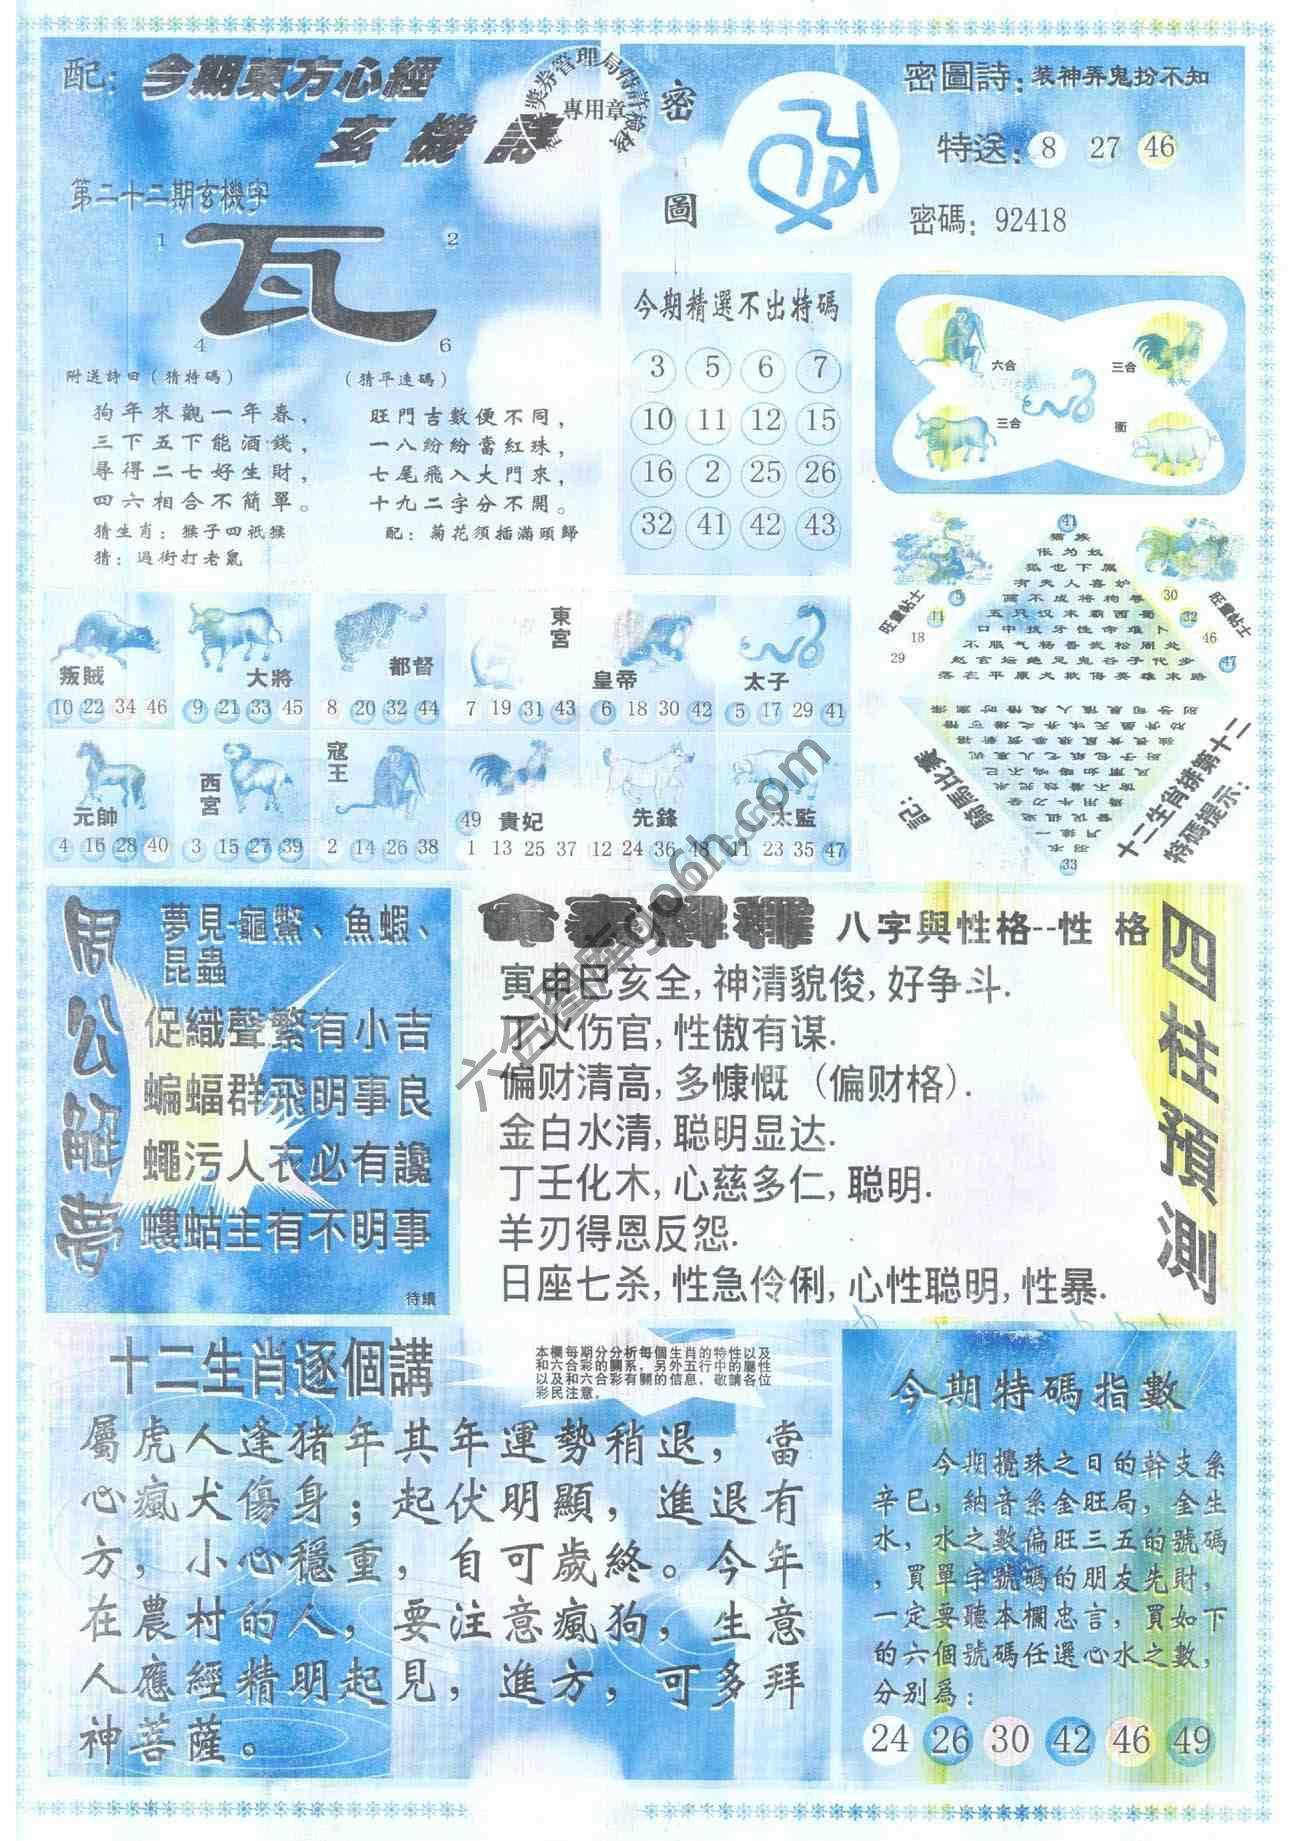 配：今期東方心經
玄機詩
獎券管理局特許檢
專用章
第二十二期玄機字
1
2
瓦
4
6
附送詩曰（猜特碼）
狗年來觀一年春，
三下五下能酒錢，
尋得二七好生財，
四六相合不簡單。
猜生肖：猴子四祇猴
猜：過街打老鼠
（猜平連碼）
旺門吉數便不同，
一八紛紛當紅珠，
七尾飛入大門來，
十九二字分不開。
配：菊花須插滿頭歸
密
圖
密圖詩：裝神弄鬼扮不知
特送：8 27 46
密碼：92418
今期精選不出特碼
3 5 6 7
10 11 12 15
16 2 25 26
32 41 42 43
六合
三合
三合
衝
41
猫族
伥为奴
狐也下属
有夫人喜妒
画不成将狗等
五只汉末霸西蜀
口中拔牙性命难卜
不服气杨香武松周处
赵玄坛绝见鬼谷子代多
落在平康犬欺伤英雄末路
旺畫帖士
11
18
29
旺畫帖士
30
32
46
47
33
記：騎馬比賽
十二生肖排第十二
特碼提示：
叛賊
10 22 34 46
大將
9 21 33 45
都督
8 20 32 44
東宮
7 19 31 43
皇帝
6 18 30 42
太子
5 17 29 41
元帥
4 16 28 40
西宮
3 15 27 39
寇王
2 14 26 38
貴妃
49
1 13 25 37
先鋒
12 24 36 48
太監
11 23 35 47
周公解夢
夢見-龜鱉、魚蝦、
昆蟲
促織聲繁有小吉
蝙蝠群飛明事良
蠅污人衣必有讒
螻蛄主有不明事
待續
八字與性格--性 格
寅申巳亥全,神清貌俊,好争斗.
丁火伤官,性傲有谋.
偏财清高,多慷慨（偏财格）.
金白水清,聪明显达.
丁壬化木,心慈多仁,聪明.
羊刃得恩反怨.
日座七杀,性急伶俐,心性聪明,性暴.
四柱預測
十二生肖逐個講
本欄每期分分析每個生肖的特性以及
和六合彩的關系，另外五行中的屬性
以及和六合彩有關的信息，敬請各位
彩民注意。
屬虎人逢猪年其年運勢稍退，當
心瘋犬傷身；起伏明顯，進退有
方，小心穩重，自可歲終。今年
在農村的人，要注意瘋狗，生意
人應經精明起見，進方，可多拜
神菩薩。
今期特碼指數
今期攪珠之日的幹支系
辛巳，納音系金旺局，金生
水，水之數偏旺三五的號碼
，買單字號碼的朋友先財，
一定要聽本欄忠言，買如下
的六個號碼任選心水之數，
分別爲：
24 26 30 42 46 49
六合图库go6h.com